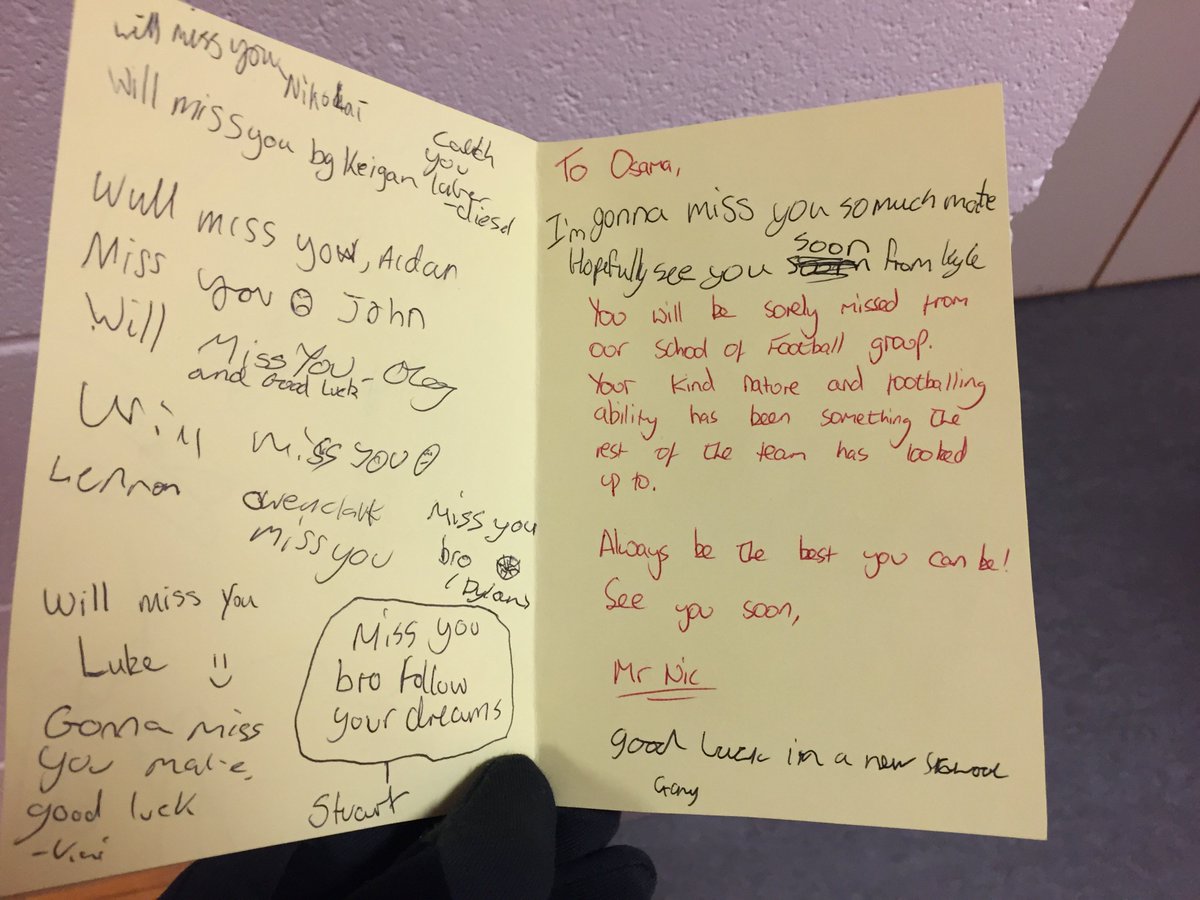 will miss you Nikolai
Will miss you by Keigan
Catch
you
later
-diesel
Wull miss you, Aidan
Miss you ☹ John
Will Miss You - Oleg
and Good Luck
Will miss you
Lennon
owen clark
miss you
Miss you
bro
Dylans
Will miss you
Luke
Miss you
bro follow
your dreams
Stuart
Gonna miss
you mate,
good luck
To Osama,
I'm gonna miss you so much mate
Hopefully see you soon from Kyle
You will be sorely missed from
our School of Football group.
Your kind nature and footballing
ability has been something the
rest of the team has looked
up to.
Always be the best you can be!
See you soon,
Mr Nic
good luck in a new school
Gary